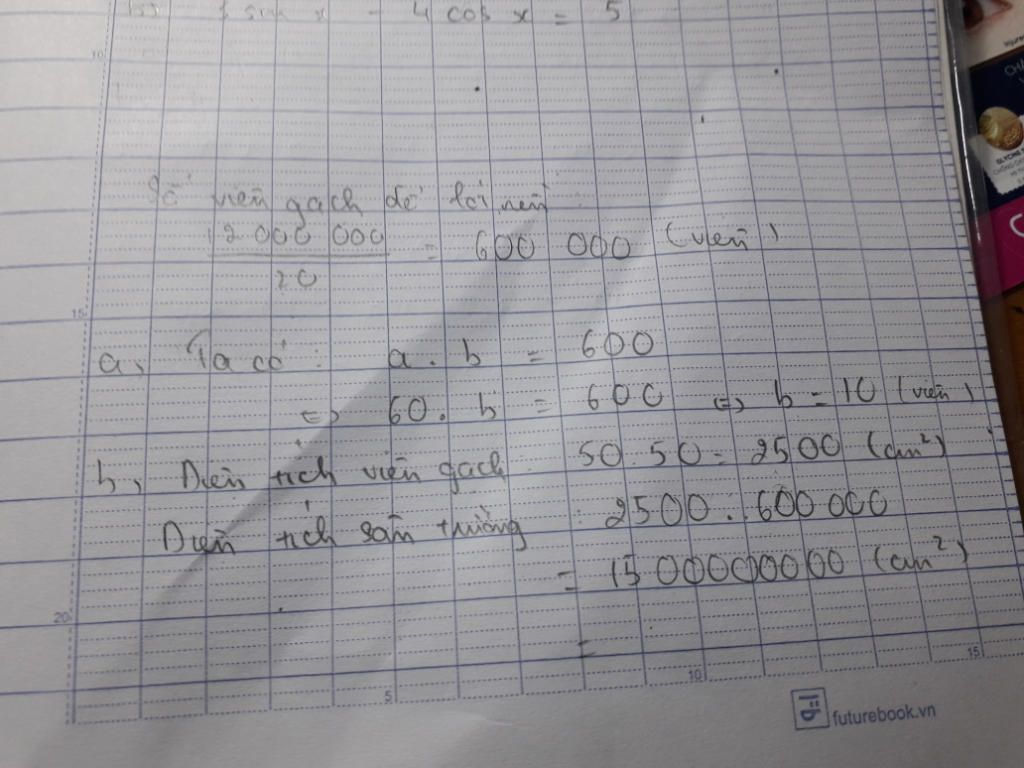 sin x - 4 cos x = 5
10
Số viên gạch để lót nền
12 000 000 / 20 = 600 000 (viên)
15
a, Ta có: a. b = 600
<=> 60. b = 600 <=> b = 10 (viên)
b, Diện tích viên gạch: 50.50 = 2500 (cm²)
Diện tích sân trường: 2500. 600 000
= 15 00000000 (cm²)
20
=
5 10 15
futurebook.vn